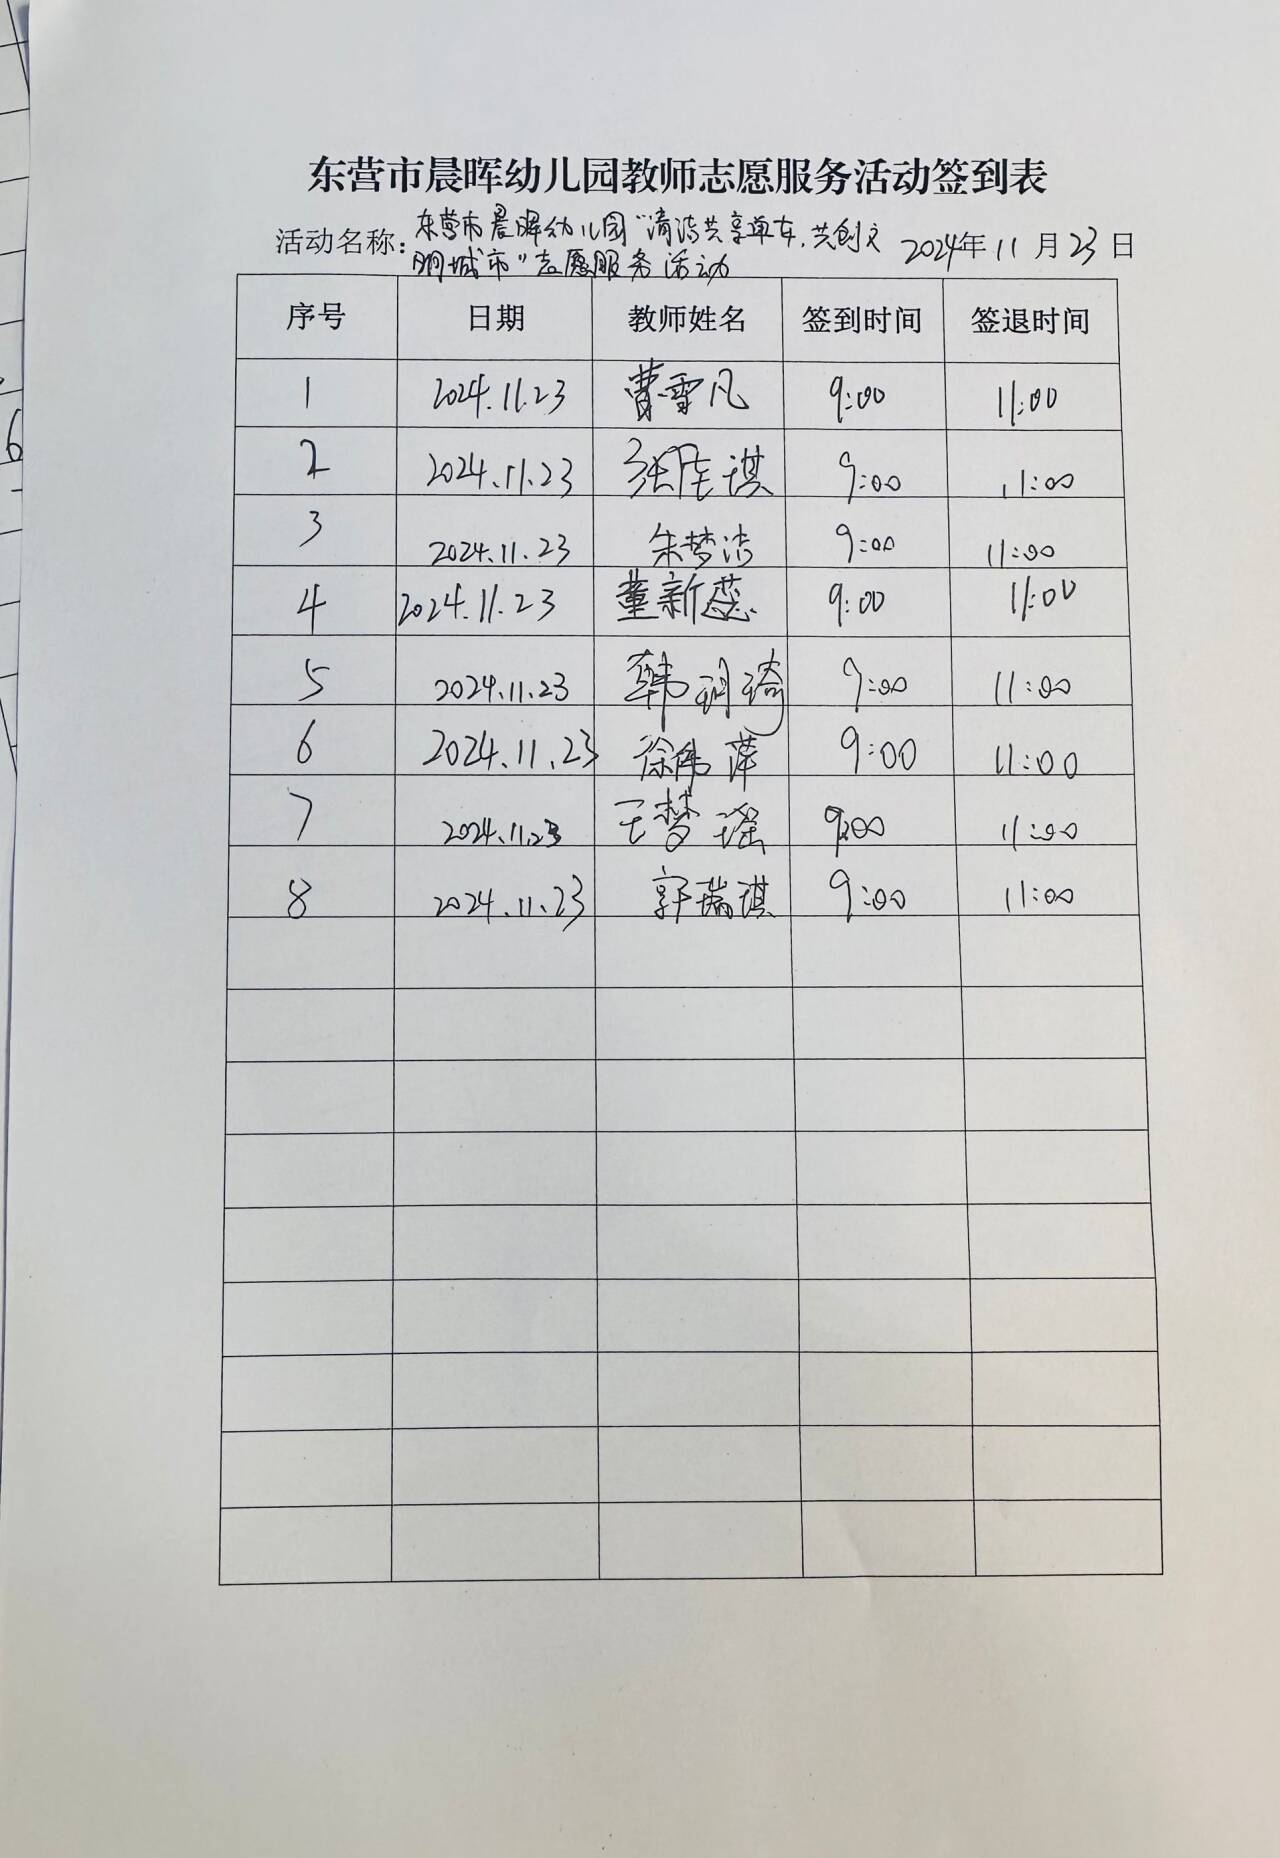 东营市晨晖幼儿园教师志愿服务活动签到表
活动名称：东营市晨晖幼儿园“清洁共享单车，共创文 2024年 11 月 23 日
明城市”志愿服务活动
序号 日期 教师姓名 签到时间 签退时间
1 2024.11.23 曹雪凡 9:00 11:00
2 2024.11.23 9:00 11:00
3 2024.11.23 朱梦洁 9:00 11:00
4 2024.11.23 董新蕊 9:00 11:00
5 2024.11.23 韩玥琦 9:00 11:00
6 2024.11.23 徐伟萍 9:00 11:00
7 2024.11.23 王梦瑶 9:00 11:00
8 2024.11.23 郭瑞琪 9:00 11:00
6